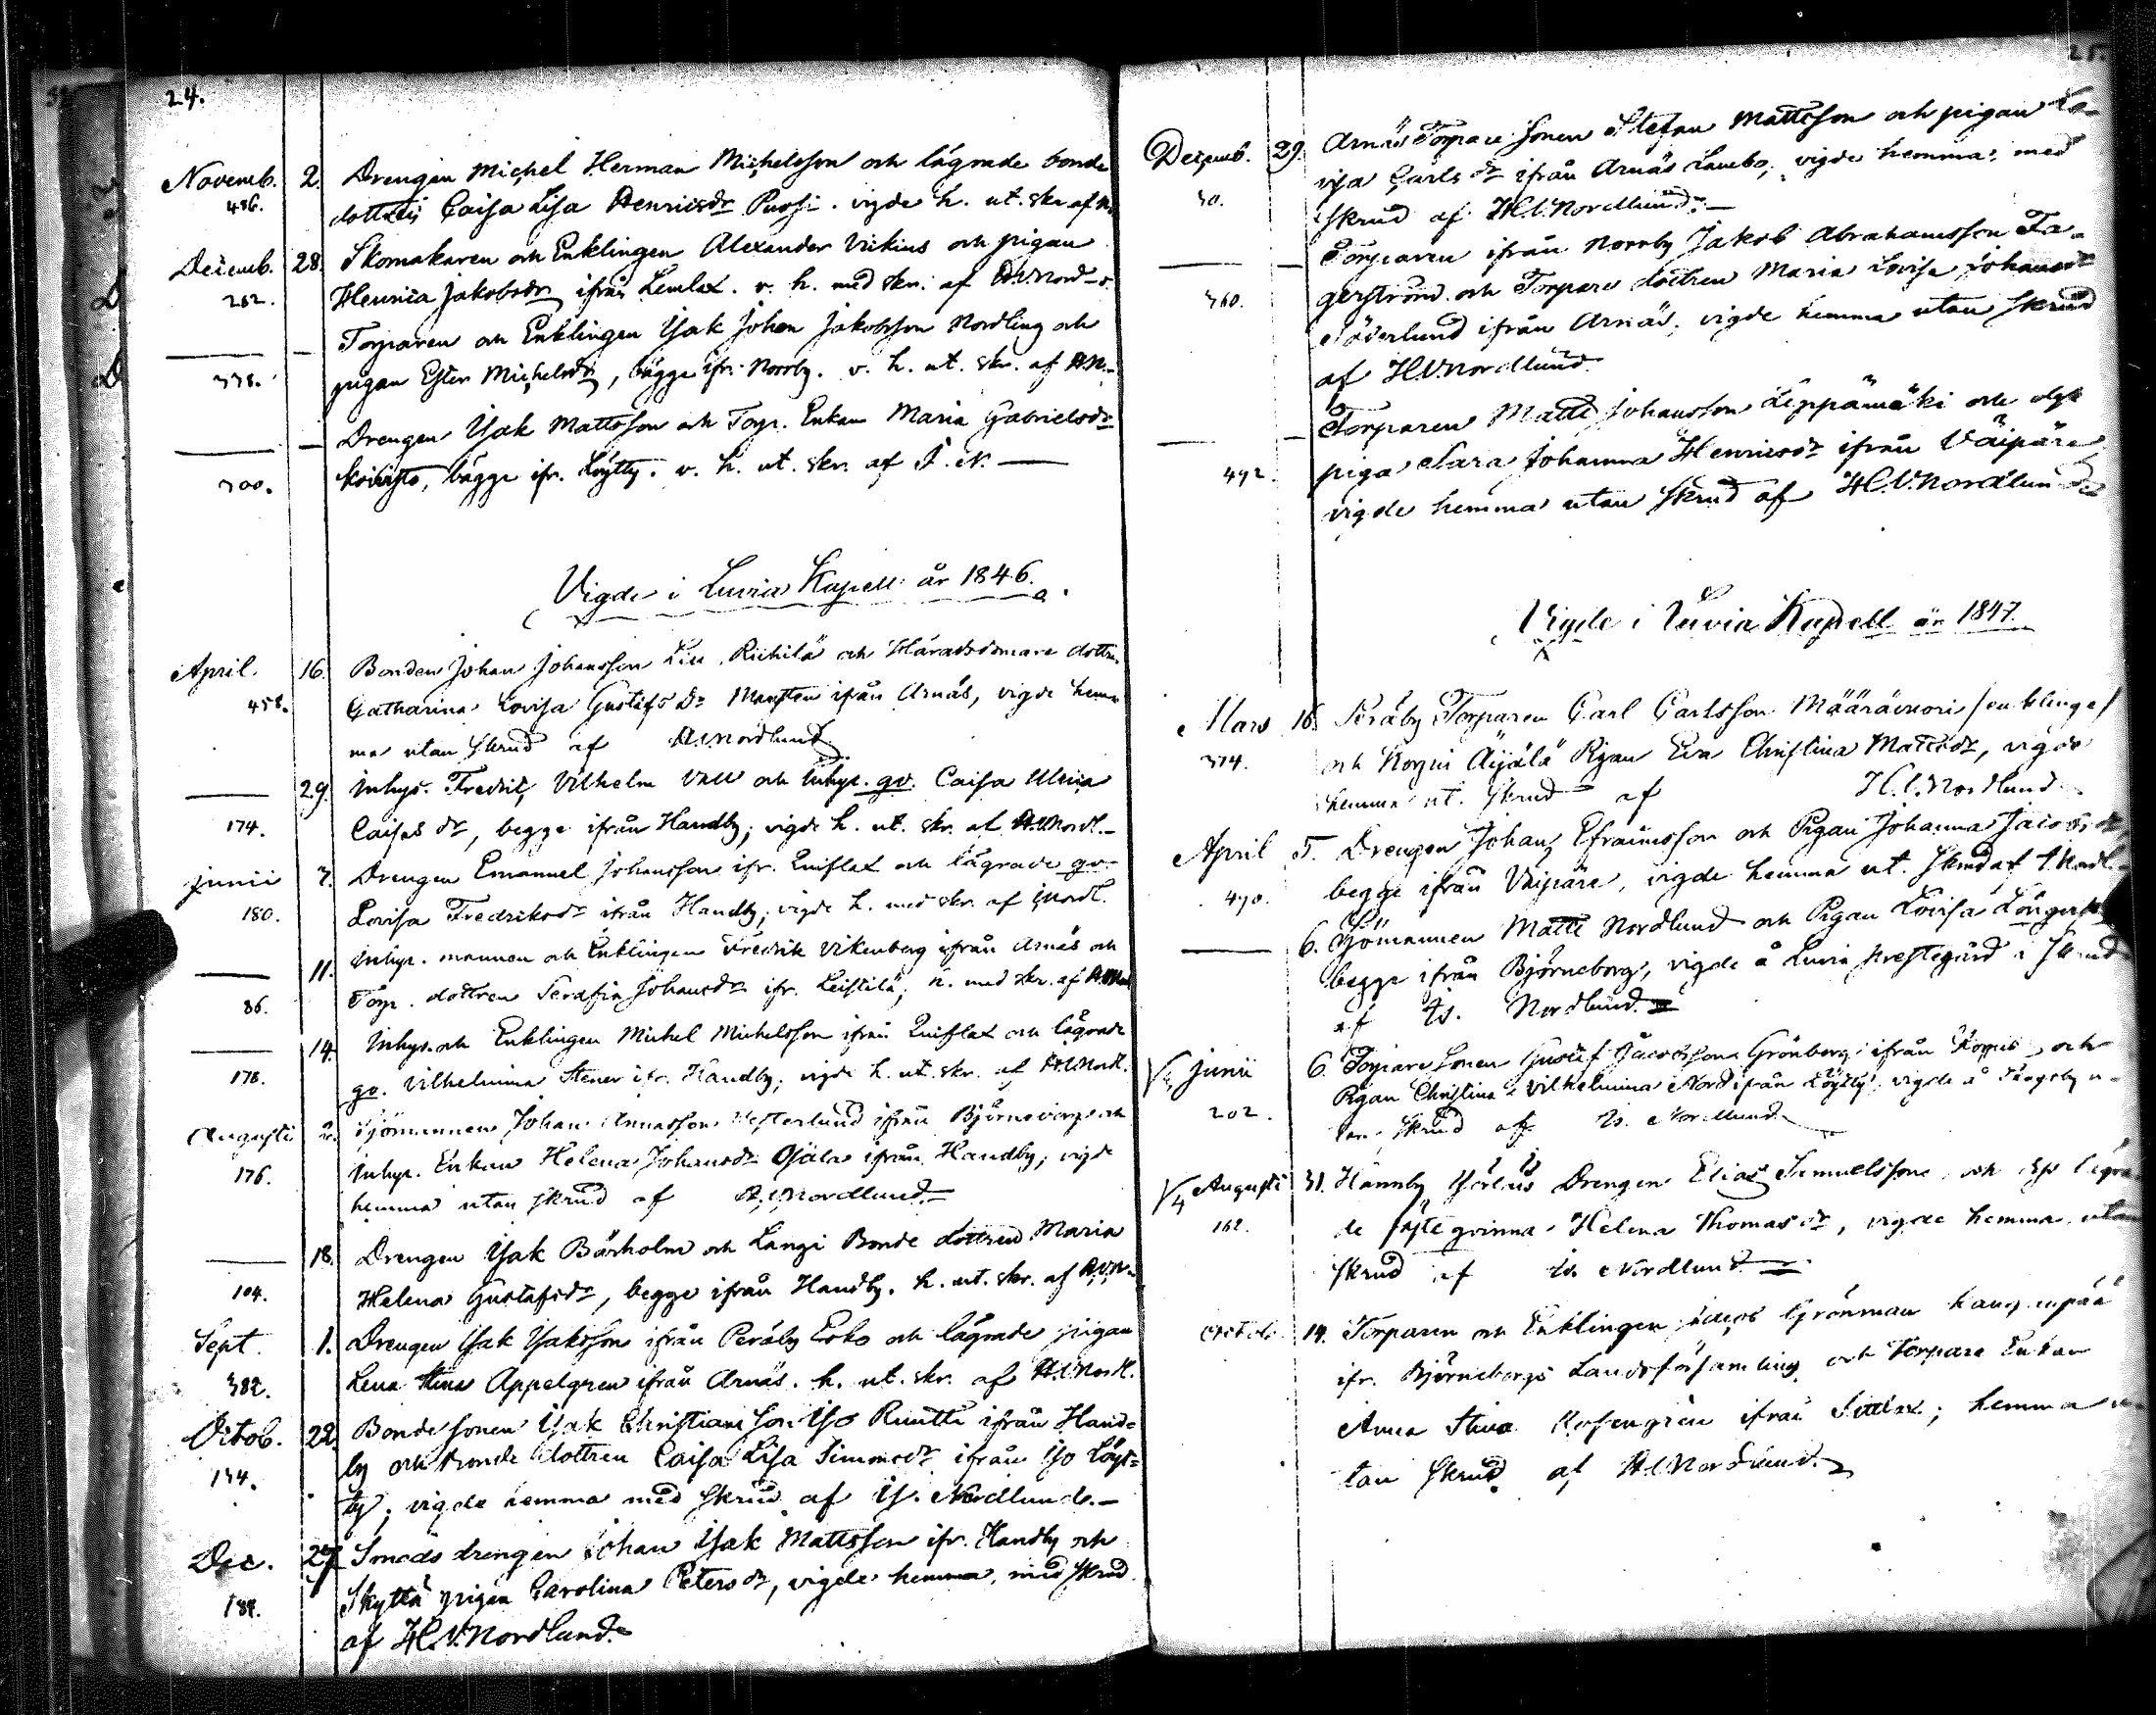 24.
Novemb. 2. Drengen Michel Herman Michelsson och lägrade bonde
486. dottren Caisa Lisa Henricsdr Pussi. vigde h. ut. skr af N.
Decemb. 28. Skomakaren och Enklingen Alexander Vickius och pigan
262. Henrica Jakobsdr ifrån Lemlax. v. h. med skr. af H.V.Nord-
Torparen och Enklingen Isak Johan Jakobsson Nordling och
338. pigan Ester Michelsdr, bägge ifr. Norrby. v. h. ut. skr. af H.N.
Drengen Isak Mattsson och Torp. Enkan Maria Gabrielsdr
300. Koivisto, bägge ifr. Löytty. v. h. ut. skr. af I. N.
Vigde i Luvia Kapell år 1846.
April. 16. Bonden Johan Johansson Liu Rickilä och Häradsdomare dottren
458. Catharina Lovisa Gustafsdr ifrån Arnäs, vigde hem-
ma utan skrud af H.V.Nordlund
29. Inhys. Fredric Vilhelm Vall och Inhys. qv. Caisa Ulrica
174. Caisasdr, begge ifrån Handby; vigde h. ut. skr. af H.V.Nordl.
Junii 7. Drengen Emanuel Johansson ifr. Quiflax och lägrade qv.
180. Lovisa Fredriksdr ifrån Handby; vigde h. med skr. af I. Nordl.
11. Inhys. mannen och Enklingen Fredrik Vikenberg ifrån Arnäs och
86. Torp. dottren Serafia Johansdr ifr. Leistilä; h. med skr. af H.V.Nord
14. Inhys. och Enklingen Michel Michelsson ifrån Quiflax och lägrade
178. qv. Vilhelmina Stener ifr. Handby; vigde h. ut. skr. af H.V.Nordl.
Augusti Sjömannen Johan Vesterlund ifrån Björneborg och
176. Inhys. Enkan Helena Johansdr Ojala ifrån Handby; vigde
hemma utan skrud af H.V.Nordlund.
18. Drengen Isak Bärholm och Langi Bonde dottren Maria
104. Helena Gustafsdr, begge ifrån Handby. h. ut. skr. af H.V.N.
Sept. 1. Drengen Isak Isaksson ifrån Peräby Erko och lägrade pigan
382. Lena Stina Appelgren ifrån Arnäs. h. ut. skr. af H.V.Nordl.
Octob. 22. Bonde sonen Isak Christiansson Iso Runtti ifrån Hand-
by och Bonde dottren Caisa Lisa Simonsdr ifrån Iso Löyt-
134. ty; vigde hemma med skrud af Is. Nordlund.
Dec. 27. Smeds drengen Johan Isak Mattsson ifr. Handby och
184. Skyttä pigan Carolina Petersdr, vigde hemma, med skrud
af H.V.Nordlund.
25.
Decemb. 29. Arnäs Torpare sonen Stefan Mattsson och pigan Lo-
30. visa Carlsdr ifrån Arnäs Lambo, vigde hemma med
skrud af H.V.Nordlund.
Torparen ifrån Norrby Jakob Abrahamsson Fa-
360. gerström och Torpare dottren Maria Lovisa Johansdr
Söderlund ifrån Arnäs, vigde hemma utan skrud
af H.V.Nordlund.
Torparen Matts Johansson Leppämäki och
492. piga Sara Johanna Henricsdr ifrån Väipäre
vigde hemma utan skrud af H.V.Nordlund
Vigde i Luvia Kapell år 1847.
Mars 16. Peräby Torparen Carl Carlsson Määrävuori /enklinge/
374. och Korpii Äijälä Pigan Eva Christina Mattsdr, vigde
hemma ut. skrud af H.V.Nordlund
April 5. Drengen Johan Efraimsson och Pigan Johanna Jacobsdr
490. begge ifrån Väipäre, vigde hemma ut. skrud af Nordl.
6. Sjömannen Matts Nordlund och Pigan Lovisa
begge ifrån Björneborg, vigde å Luvia prestegård i skrud
af Is. Nordlund.
Junii 6. Torpare sonen Gustaf Jacobsson Grönberg ifrån Korpii och
202. Pigan Christina Vilhelmina Nord ifrån Löytty, vigde å u-
tan skrud af Is. Nordlund
Augusti 31. Hannby Drengen Elias Samuelsson och lägra-
162. de fästeqvinna Helena Thomasdr, vigde hemma utan
skrud af Is. Nordlund
Octob. 14. Torparen och Enklingen Jacob Grönman
ifr. Björneborgs Landsförsamling och Torpare Enkan
Anna Stina Rosengren ifrån; hemma u-
tan skrud af H.V.Nordlund.